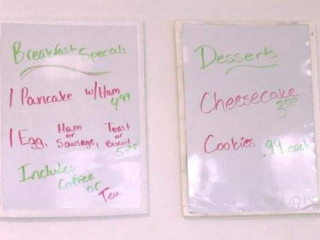 Breakfast Specials
1 Pancake w/Ham
4.99
1 Egg, Ham or Sausage, Toast or Biscuit
5.25
Includes
Coffee
or
Tea
Desserts
Cheesecake
3.00
Cookies .99 each